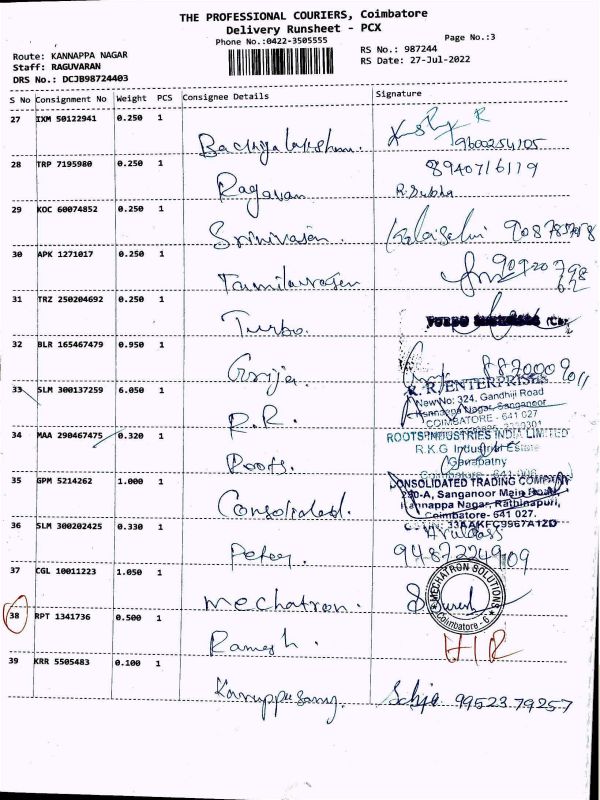 THE PROFESSIONAL COURIERS, Coimbatore
Delivery Runsheet - PCX
Phone No.:0422-3505555
Page No.:3
Route: KANNAPPA NAGAR
RS No.: 987244
Staff: RAGUVARAN
RS Date: 27-Jul-2022
DRS No.: DCJB98724403
S No Consignment No Weight PCS Consignee Details Signature
27 IXM 50122941 0.250 1
9600254105
28 TRP 7195980 0.250 1 8940716119
Ragavan R. Subha
29 KOC 60074852 0.250 1
Srinivasan.
30 APK 1271017 0.250 1
Tamilarasan
31 TRZ 250204692 0.250 1
Turbo.
32 BLR 165467479 0.950 1
Girija.
33 SLM 300137259 6.050 1 R. R. ENTERPRISES
New No: 324, Gandhiji Road
Kannappa Nagar, Sanganoor
COIMBATORE - 641 027
R.R.
34 MAA 290467475 0.320 1 ROOTS INDUSTRIES INDIA LIMITED
R.K.G Industrial Estate
Ganapathy
Roots. Coimbatore - 641 006
35 GPM 5214262 1.000 1 CONSOLIDATED TRADING COMPANY
250-A, Sanganoor Main Road,
Kannappa Nagar, Rathinapuri,
Consolidated. Coimbatore- 641 027.
36 SLM 300202425 0.330 1 GSTIN: 33AAKFC9967A1ZD
Peter. 9487224909
37 CGL 10011223 1.050 1 MECHATRON SOLUTIONS
mechatron. Suresh
Coimbatore - 6
38 RPT 1341736 0.500 1
Ramesh. H/R
39 KRR 5505483 0.100 1
Karuppusamy. 9952379257